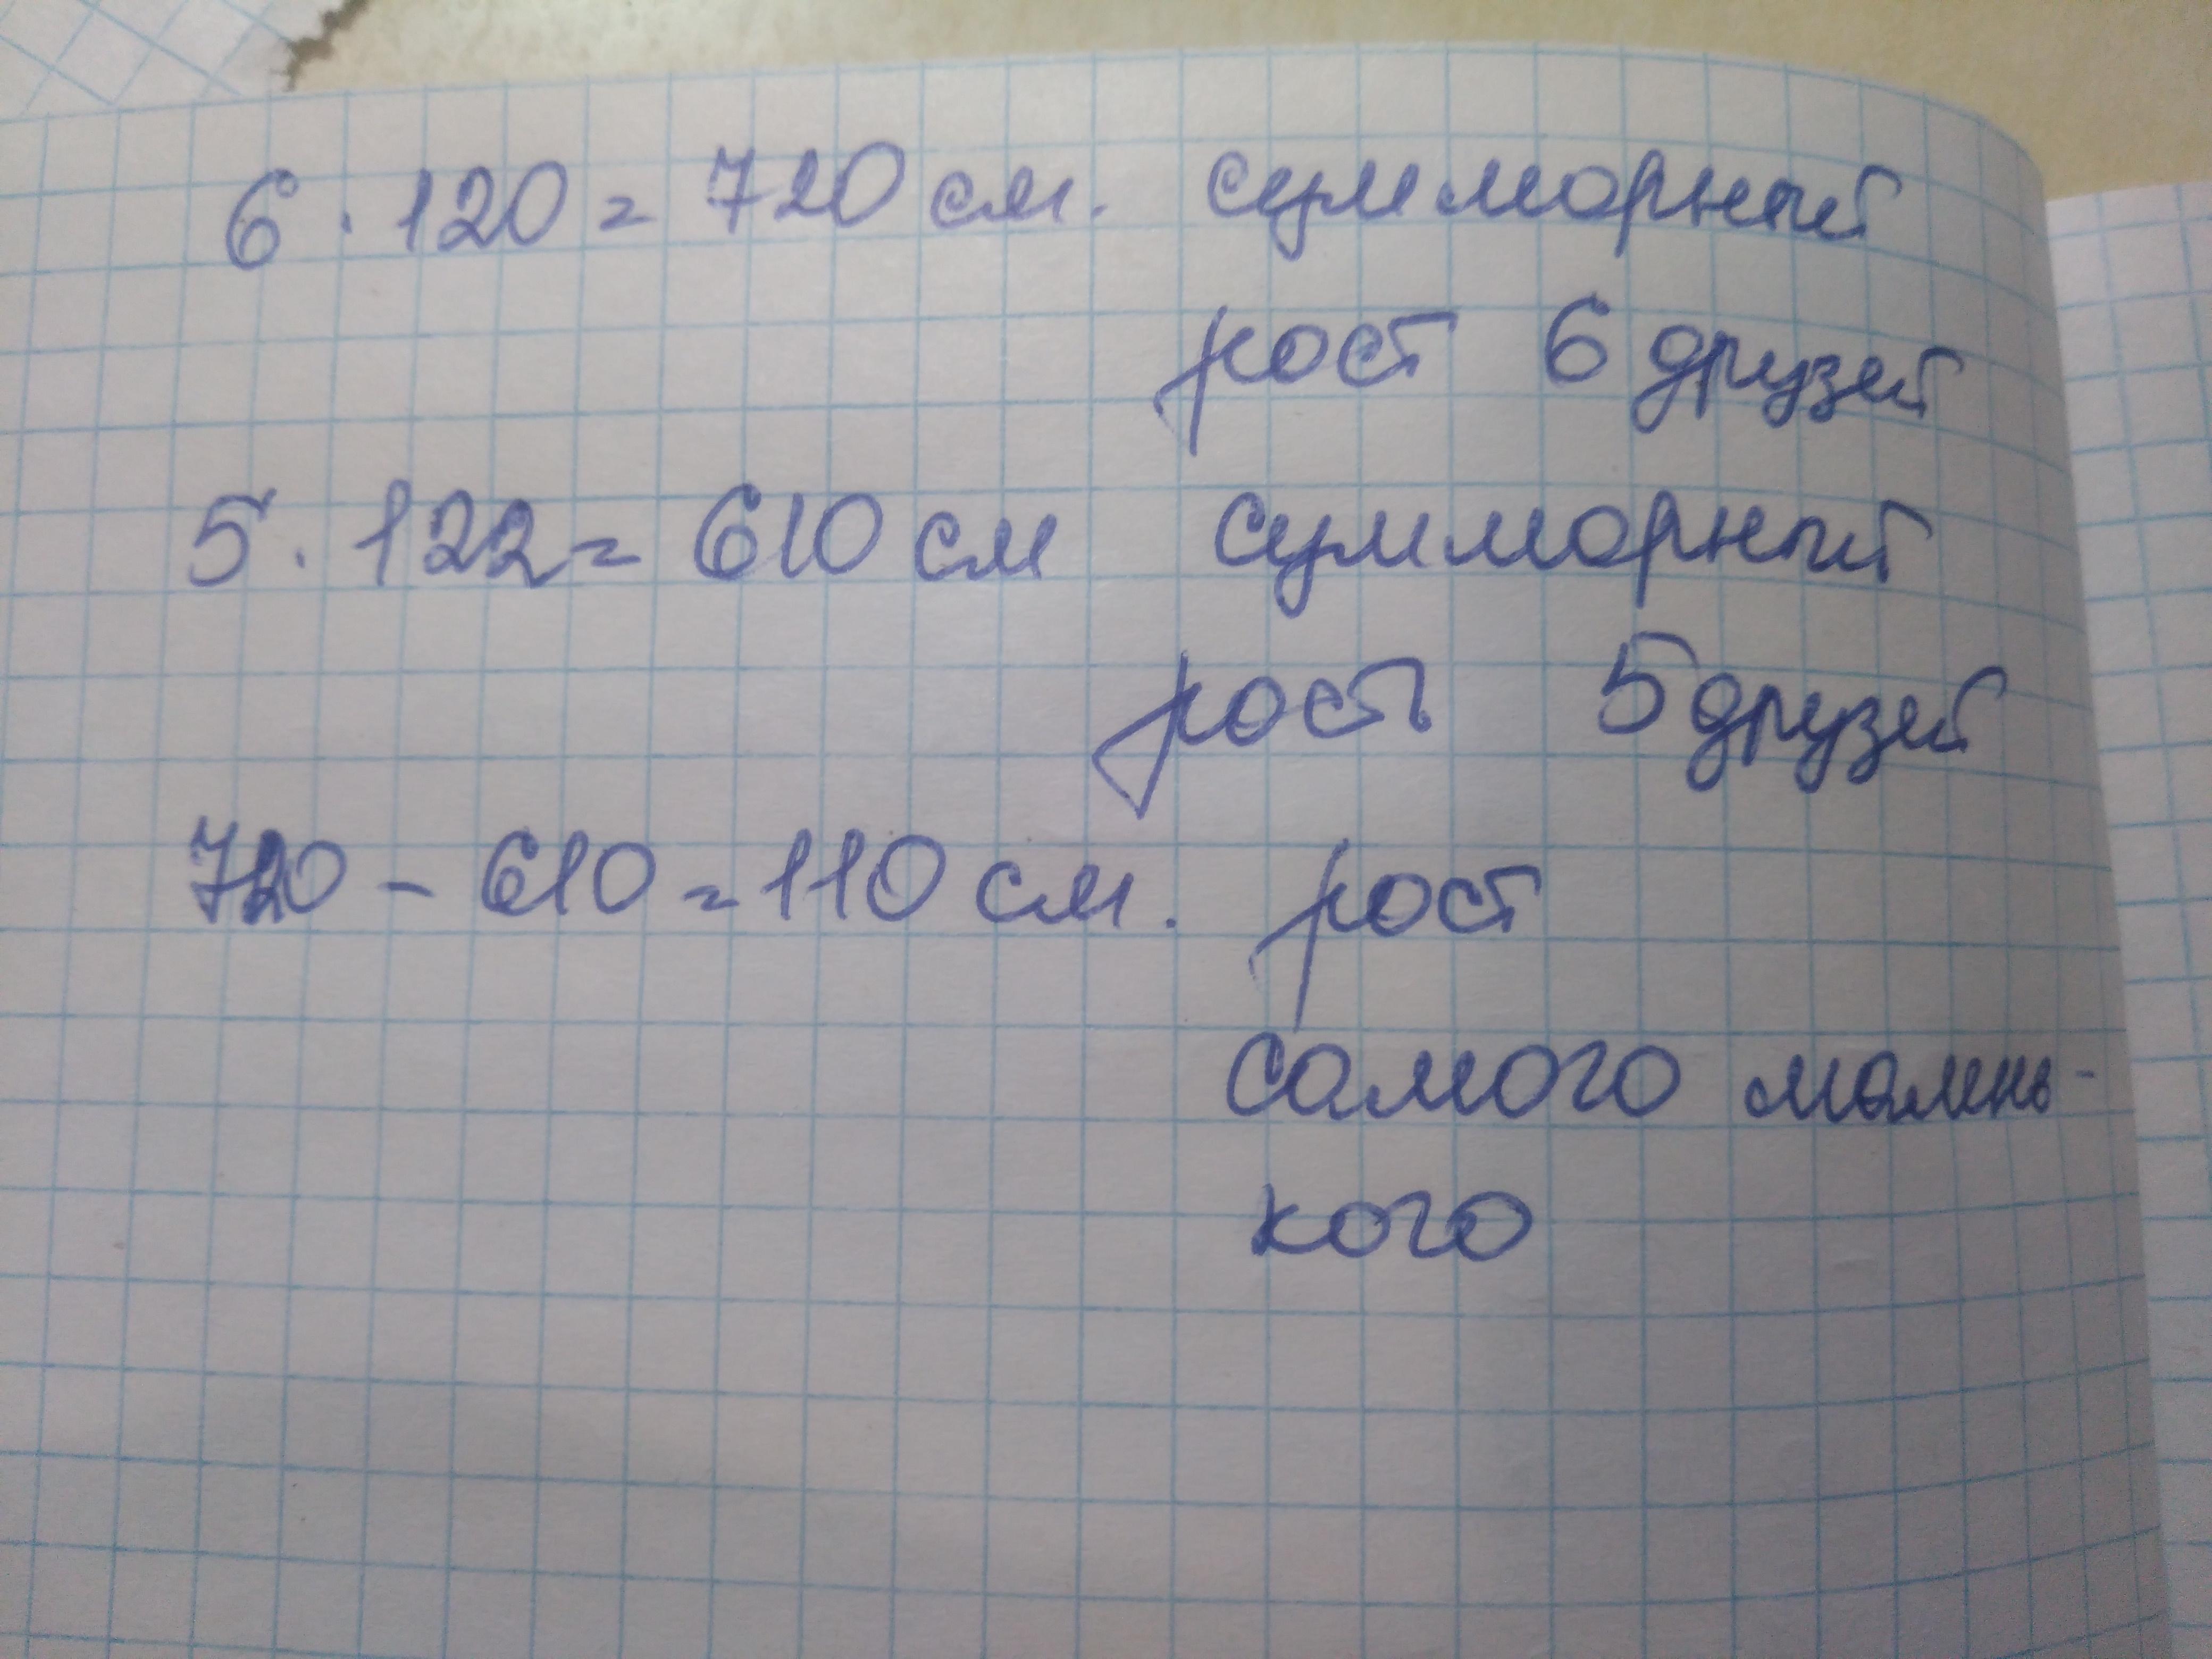 6 · 120 = 720 см. суммарный
рост 6 друзей
5 · 122 = 610 см суммарный
рост 5 друзей
720 - 610 = 110 см. рост
самого малень-
кого